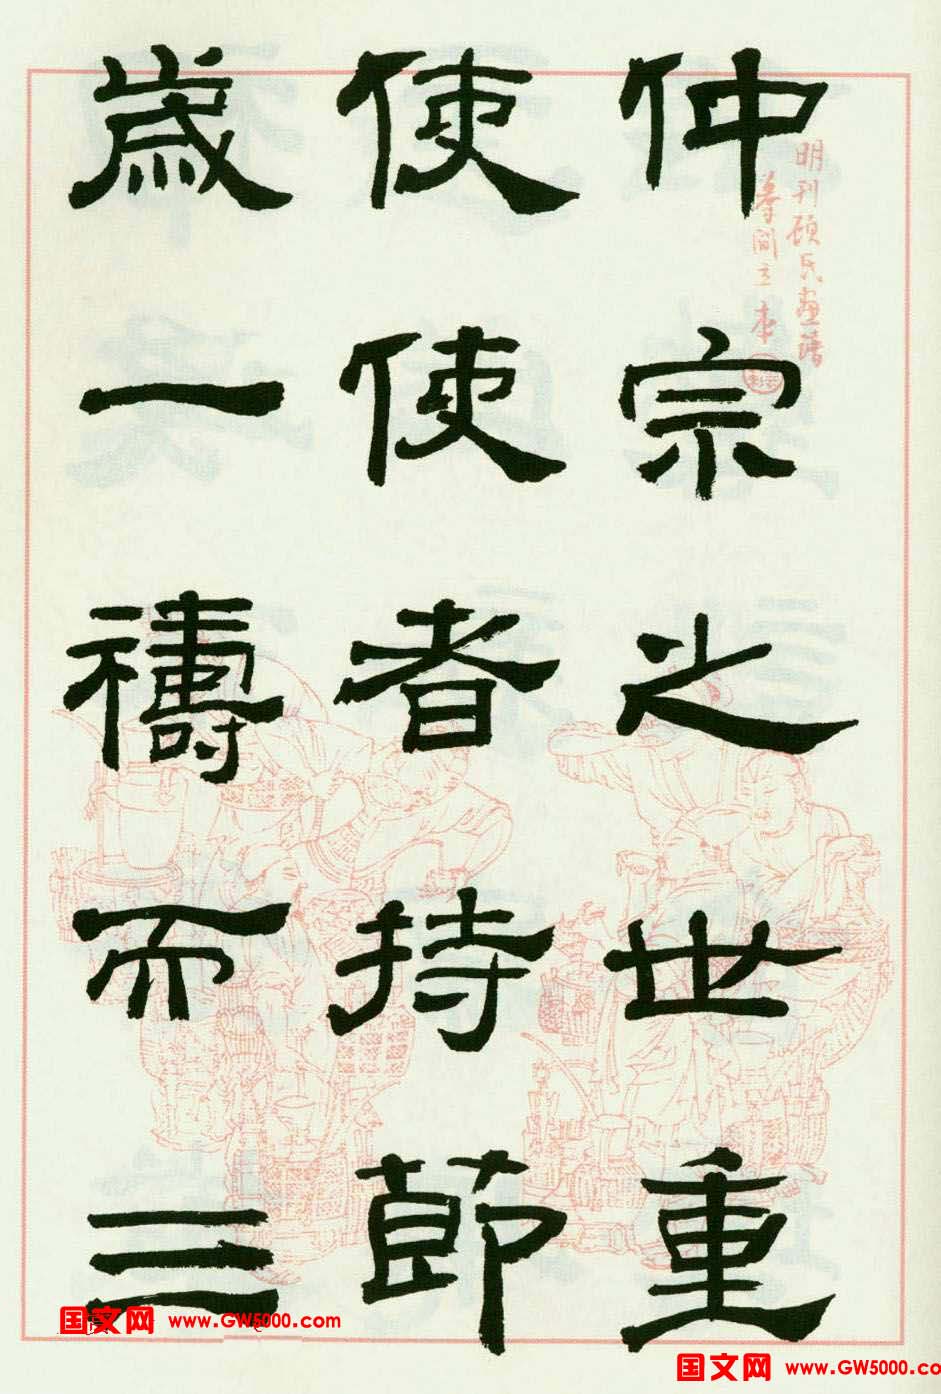 仲宗之世重
使使者持節
歲一禱而三
明刊顧氏畫譜
摹閻立本
国文网 www.GW5000.com
国文网 www.GW5000.co